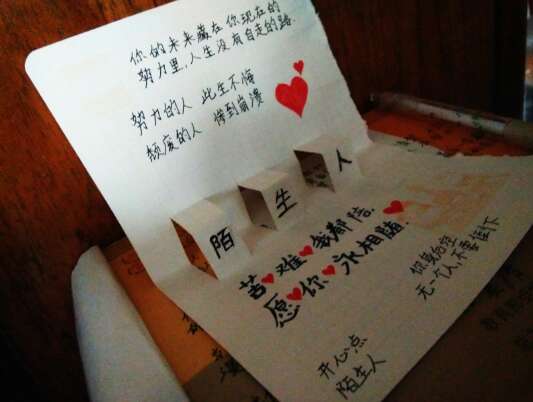 你的未来藏在你现在的
努力里,人生没有白走的路.
努力的人 此生不悔
颓废的人 悔到崩溃
陌生人
苦难我都陪.
愿你永相
你身后空
无一个人,不要往下
开心点
陌生人